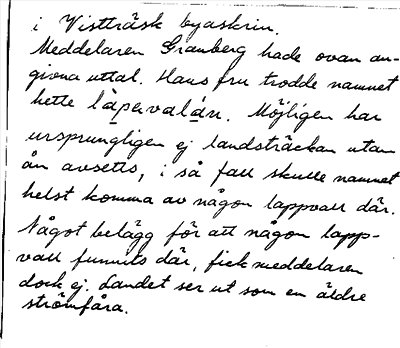 i Vistträsk byaskrin.
Meddelaren Granberg hade ovan an-
givna uttal. Hans fru trodde namnet
hette lāpavalán. Möjligen har
ursprungligen ej landsträckan utan
ån avsetts, i så fall skulle namnet
helst komma av någon lappvall där.
Något belägg för att någon lapp-
vall funnits där, fick meddelaren
dock ej. Landet ser ut som en äldre
strömfåra.